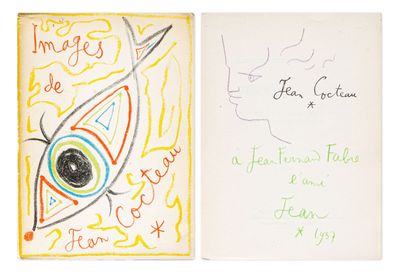 Images
de
Jean Cocteau *
Jean Cocteau
*
à Jean Fernand Fabre
l'ami
Jean
* 1957